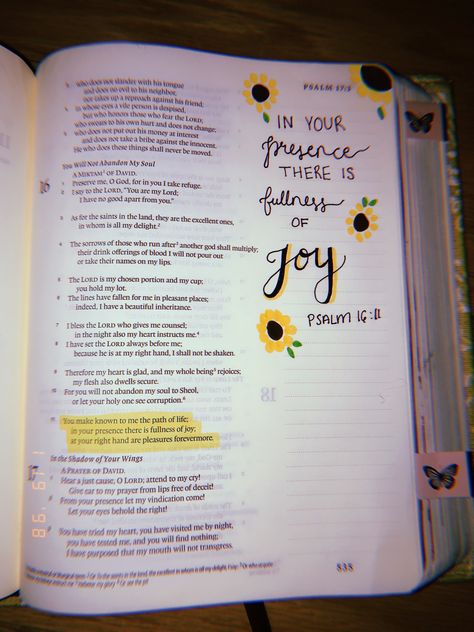 PSALM 17:3
who does not slander with his tongue
and does no evil to his neighbor,
nor takes up a reproach against his friend;
4 in whose eyes a vile person is despised,
but who honors those who fear the LORD;
who swears to his own hurt and does not change;
5 who does not put out his money at interest
and does not take a bribe against the innocent.
He who does these things shall never be moved.
You Will Not Abandon My Soul
A MIKTAM¹ OF DAVID.
16 1 Preserve me, O God, for in you I take refuge.
2 I say to the LORD, "You are my Lord;
I have no good apart from you."
3 As for the saints in the land, they are the excellent ones,
in whom is all my delight.²
4 The sorrows of those who run after³ another god shall multiply;
their drink offerings of blood I will not pour out
or take their names on my lips.
5 The LORD is my chosen portion and my cup;
you hold my lot.
6 The lines have fallen for me in pleasant places;
indeed, I have a beautiful inheritance.
7 I bless the LORD who gives me counsel;
in the night also my heart instructs me.⁴
8 I have set the LORD always before me;
because he is at my right hand, I shall not be shaken.
9 Therefore my heart is glad, and my whole being⁵ rejoices;
my flesh also dwells secure.
10 For you will not abandon my soul to Sheol,
or let your holy one see corruption.⁶
11 You make known to me the path of life;
in your presence there is fullness of joy;
at your right hand are pleasures forevermore.
In the Shadow of Your Wings
A PRAYER OF DAVID.
Hear a just cause, O LORD; attend to my cry!
Give ear to my prayer from lips free of deceit!
2 From your presence let my vindication come!
Let your eyes behold the right!
3 You have tried my heart, you have visited me by night,
you have tested me, and you will find nothing;
I have purposed that my mouth will not transgress.
IN YOUR
presence
THERE IS
fullness
OF
Joy
PSALM 16:11